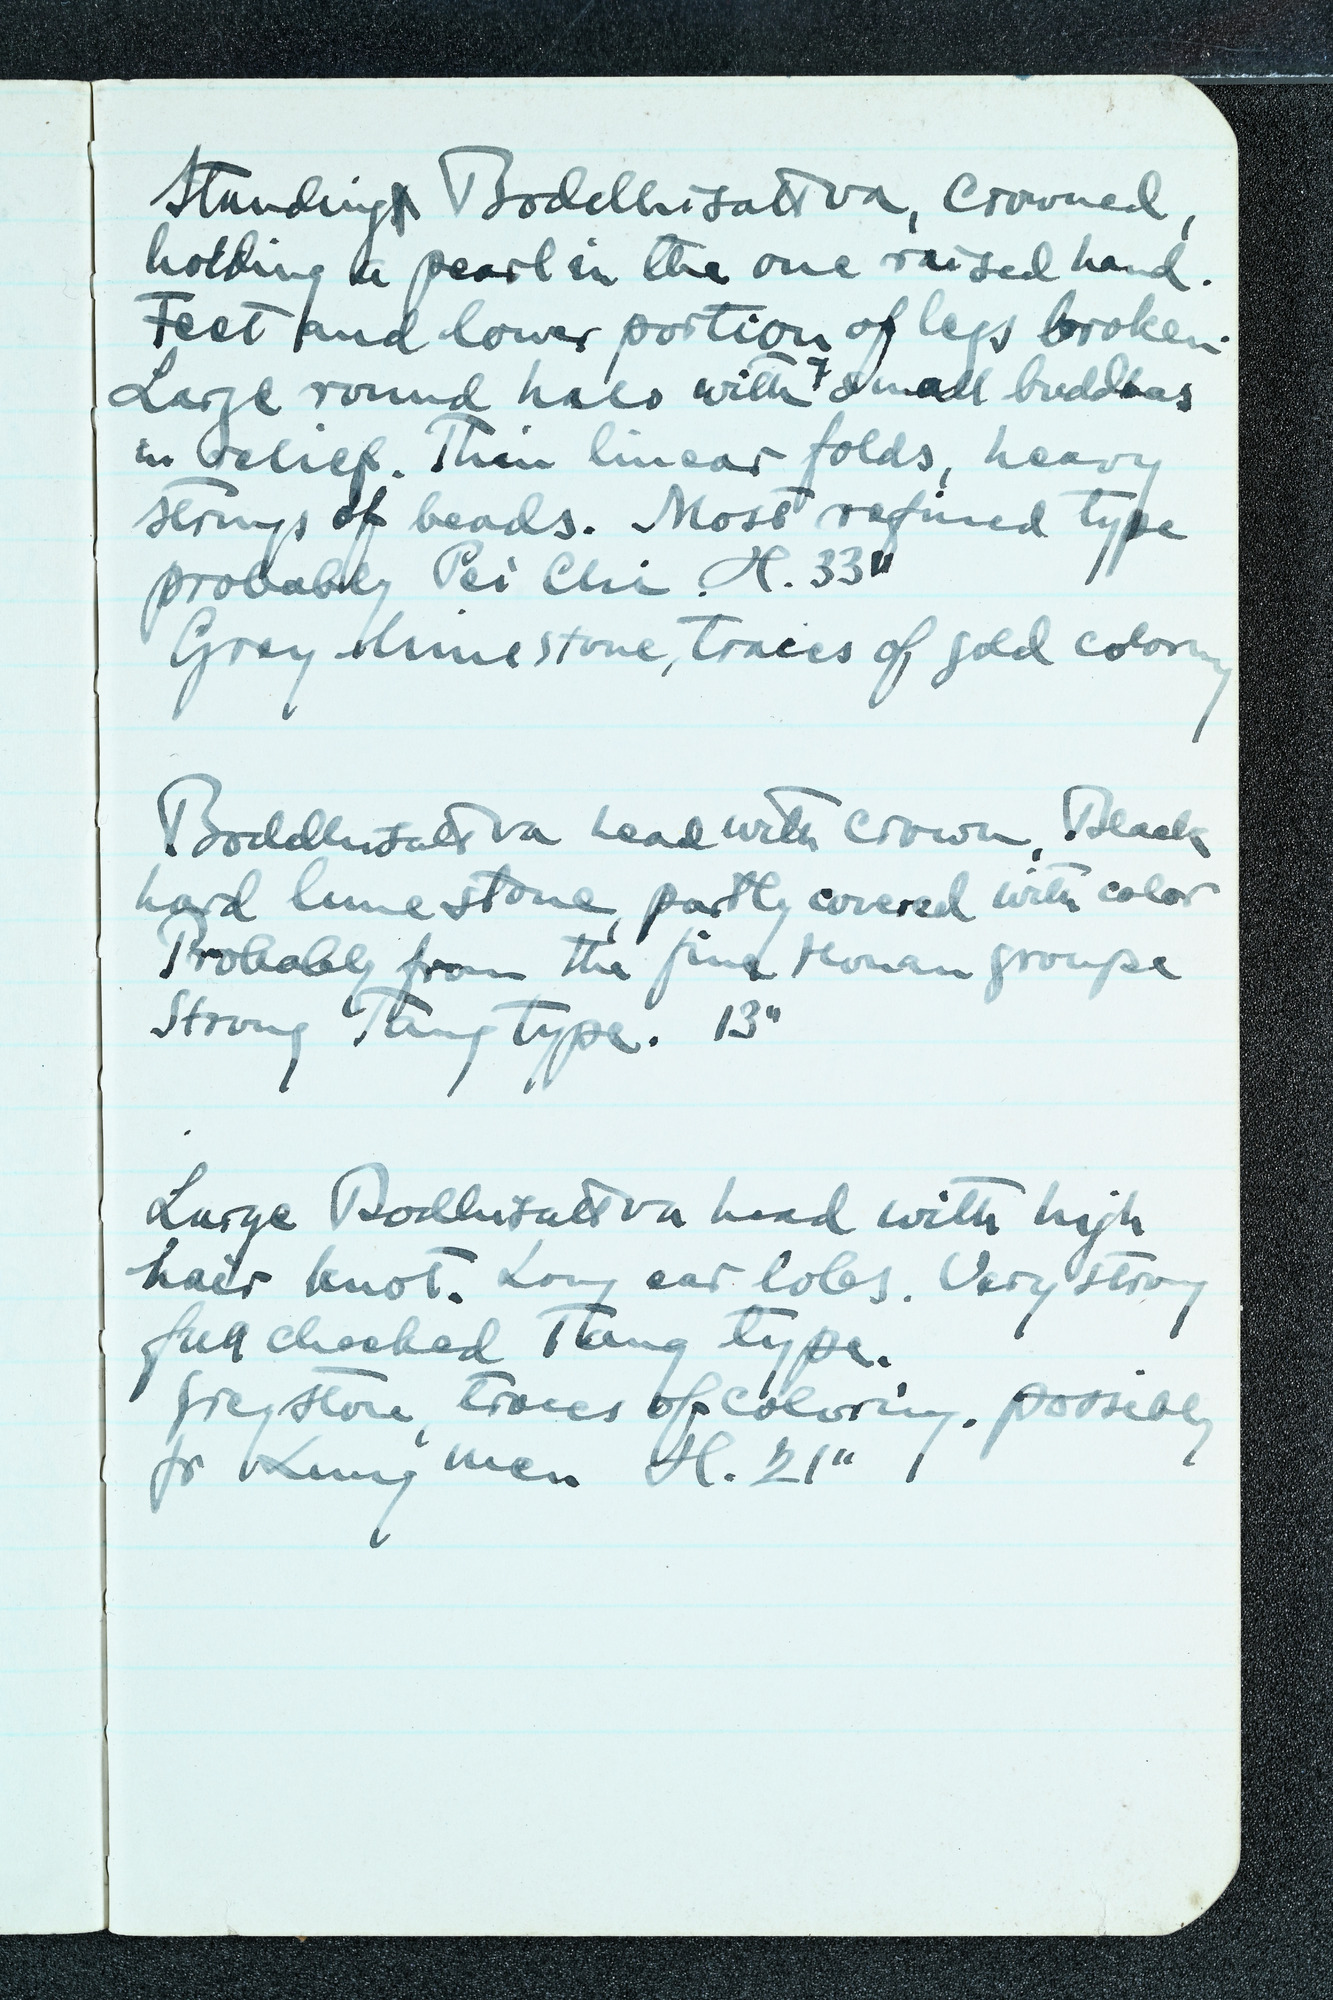 Standing Boddhisattva, crowned,
holding a pearl in the one raised hand.
Feet and lower portion of legs broken.
Large round halo with 7 small buddhas
in relief. Thin linear folds, heavy
strings of beads. Most refined type
probably Pei Chi. H. 33"
Grey limestone, traces of gold coloring
Boddhisattva head with crown, Black
hard limestone, partly covered with color
Probably from the fine Honan groupe
Strong Tang type. 13"
Large Bodhisattva head with high
hair knot. Long ear lobes. Very strong
full cheeked Tang type.
Grey stone, traces of coloring. possibly
fr Lung men H. 21"